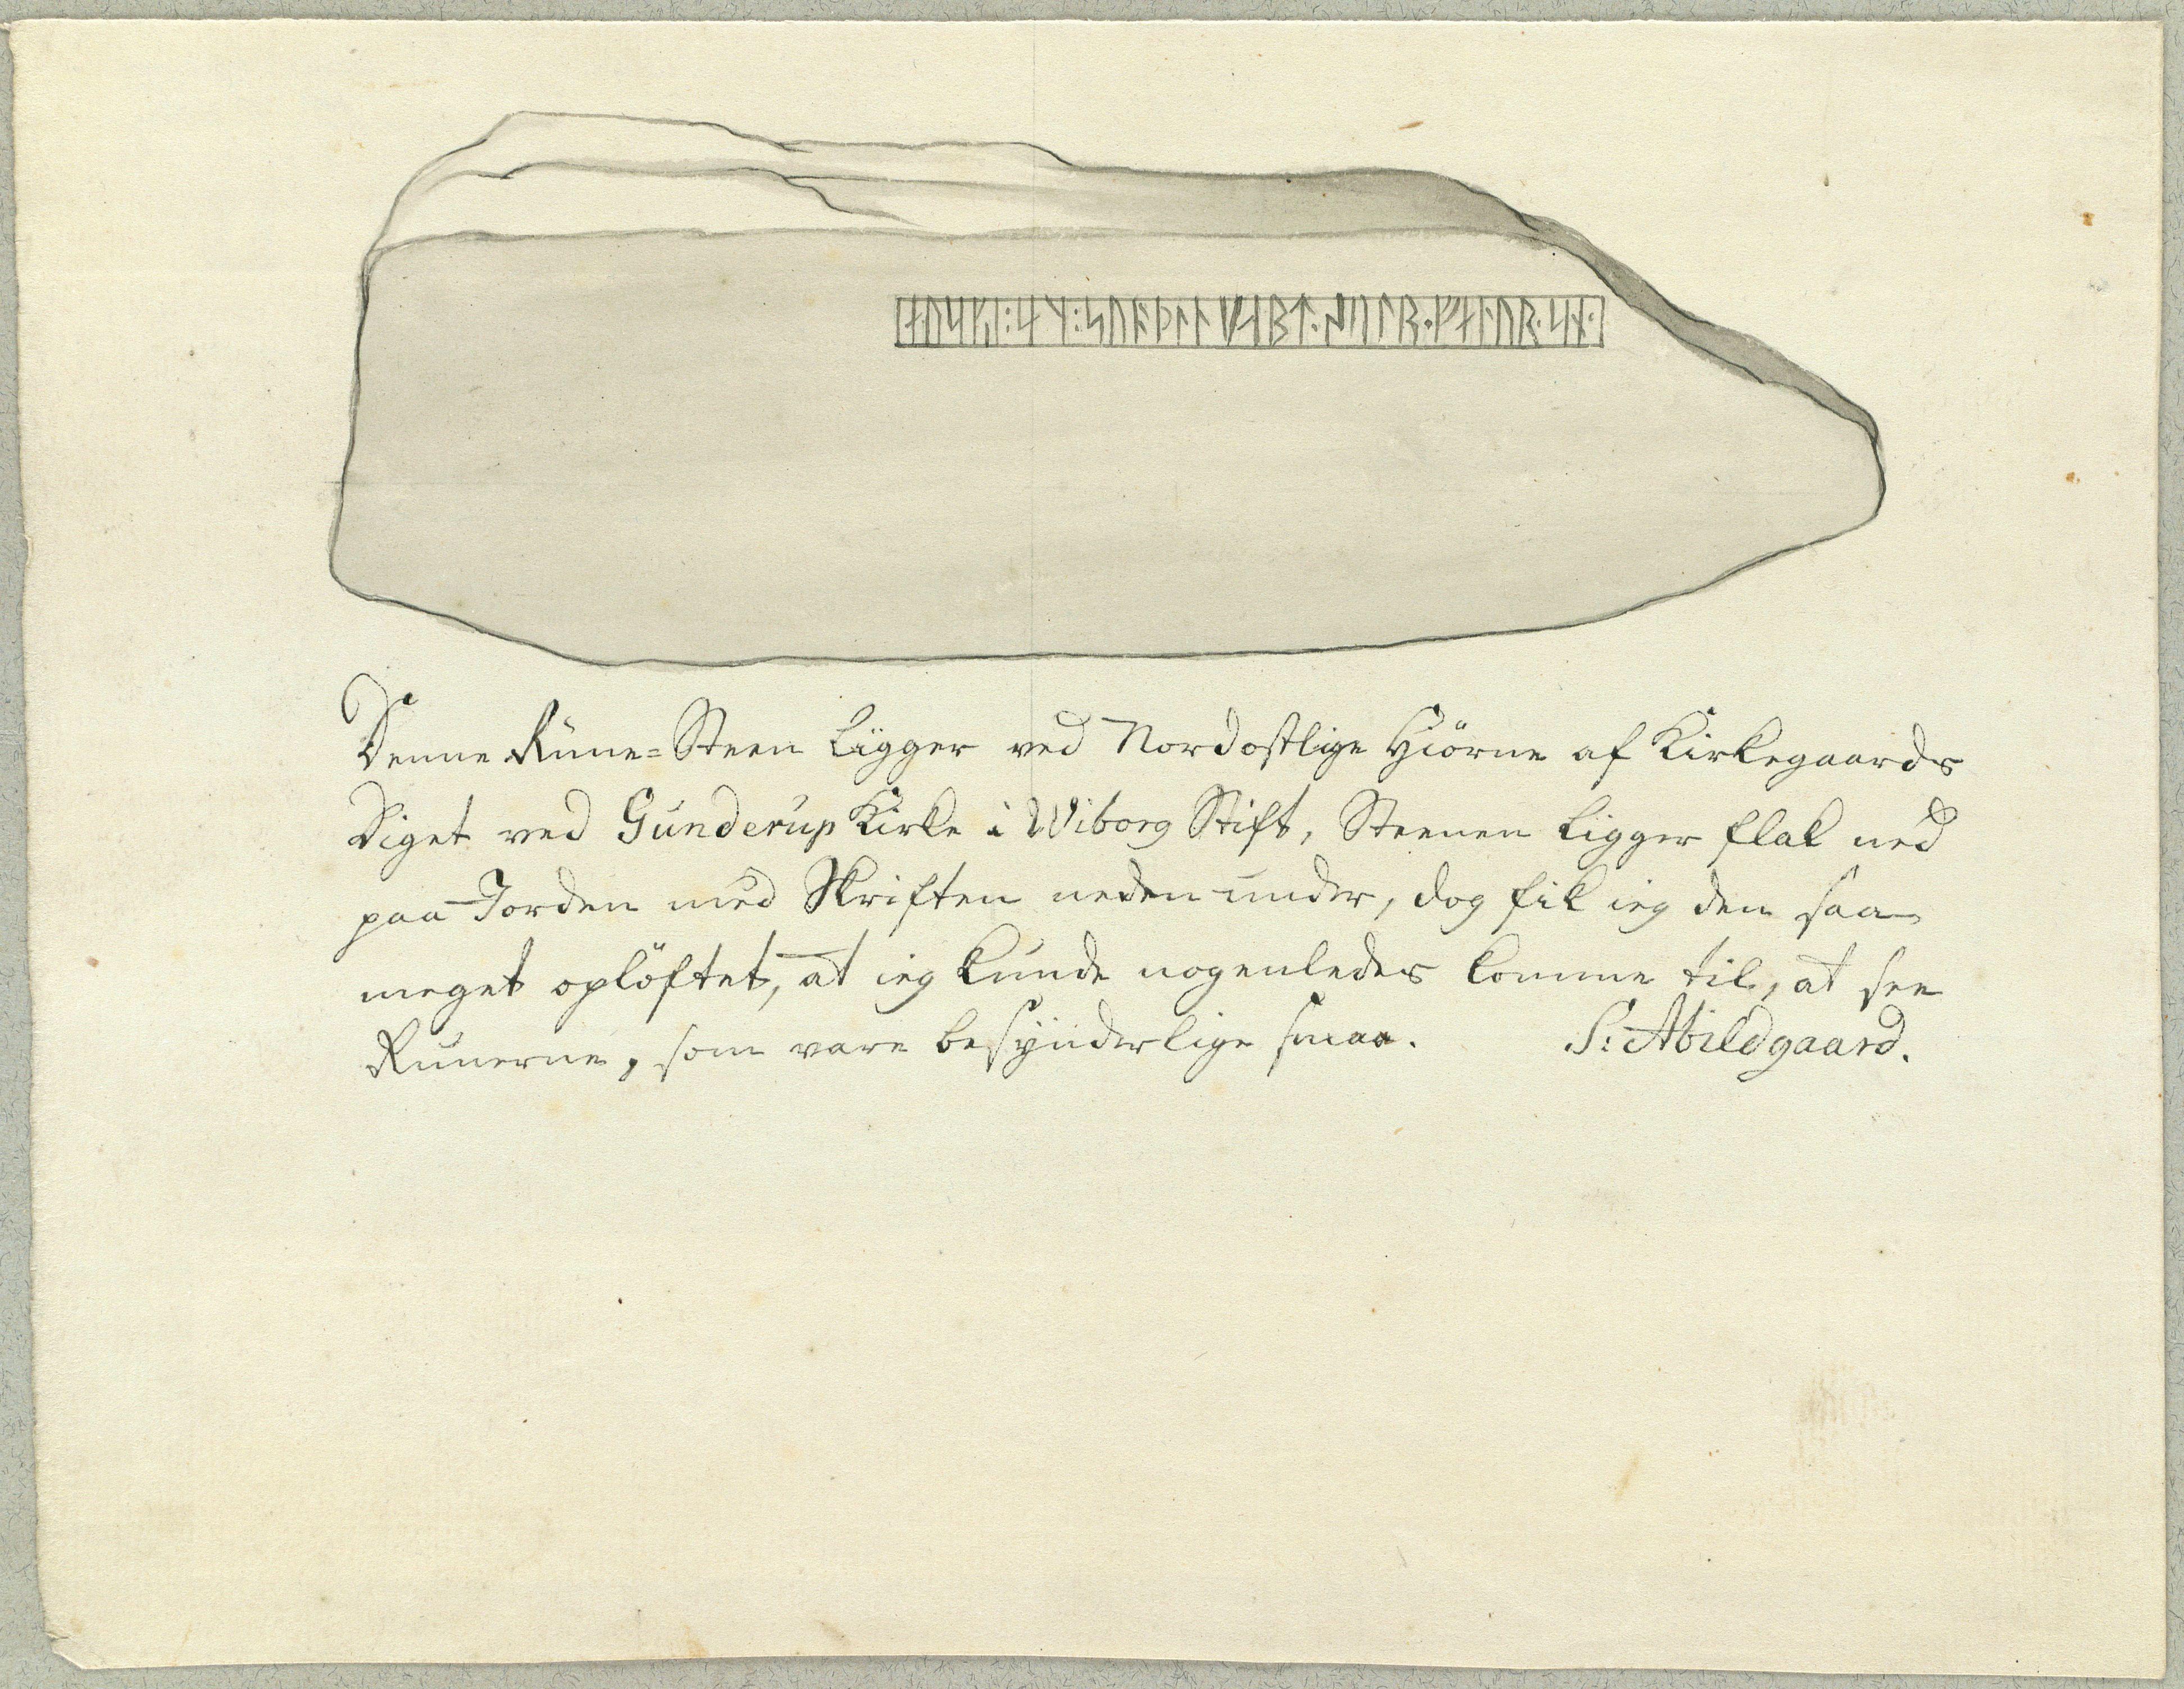 Denne Rune=Steen ligger ved Nordostlige Hiörne af Kirkegaards
Diget ved Gunderup Kirke i Wiborg Stift, Steenen ligger flak ned
paa Jorden med Skriften neden under, dog fik ieg den saa
meget oplöftet, at ieg kunde nogenledes komme til, at see
Runerne, som vare besynderlige smaa. S: Abildgaard.